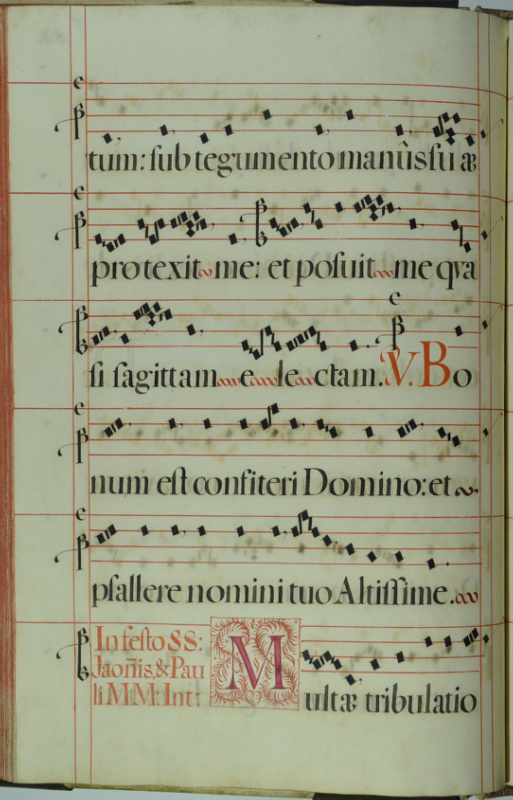 tum: sub tegumento manùs suæ
protexit me: et posuit me qva
si sagittam electam. V. Bo
num est confiteri Domino: et
psallere nomini tuo Altissime.
In festo SS:
Jaoñis, & Pau
li M: M: Int:
Multæ tribulatio